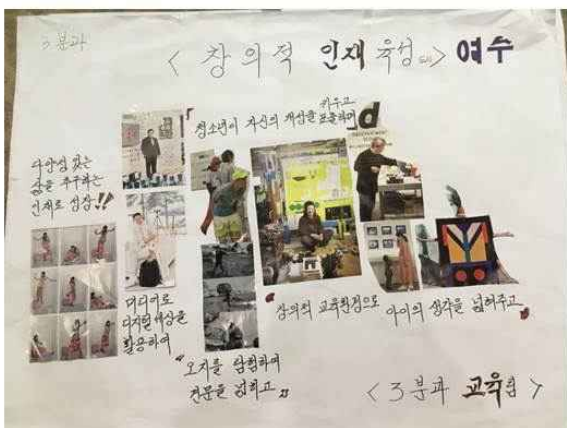 3분과
< 창의적 인재 육성 도시 > 여수
키우고
『청소년이 자신의 개성을 표출하며
d
다양성 있는
삶을 추구하는
인재로 성장!!
미디어로
디지털세상을
활용하여
"오지를 탐험하여
견문을 넓히고 "
"창의적 교육환경으로
아이의 생각을 넓혀주고 "
< 3분과 교육팀 >